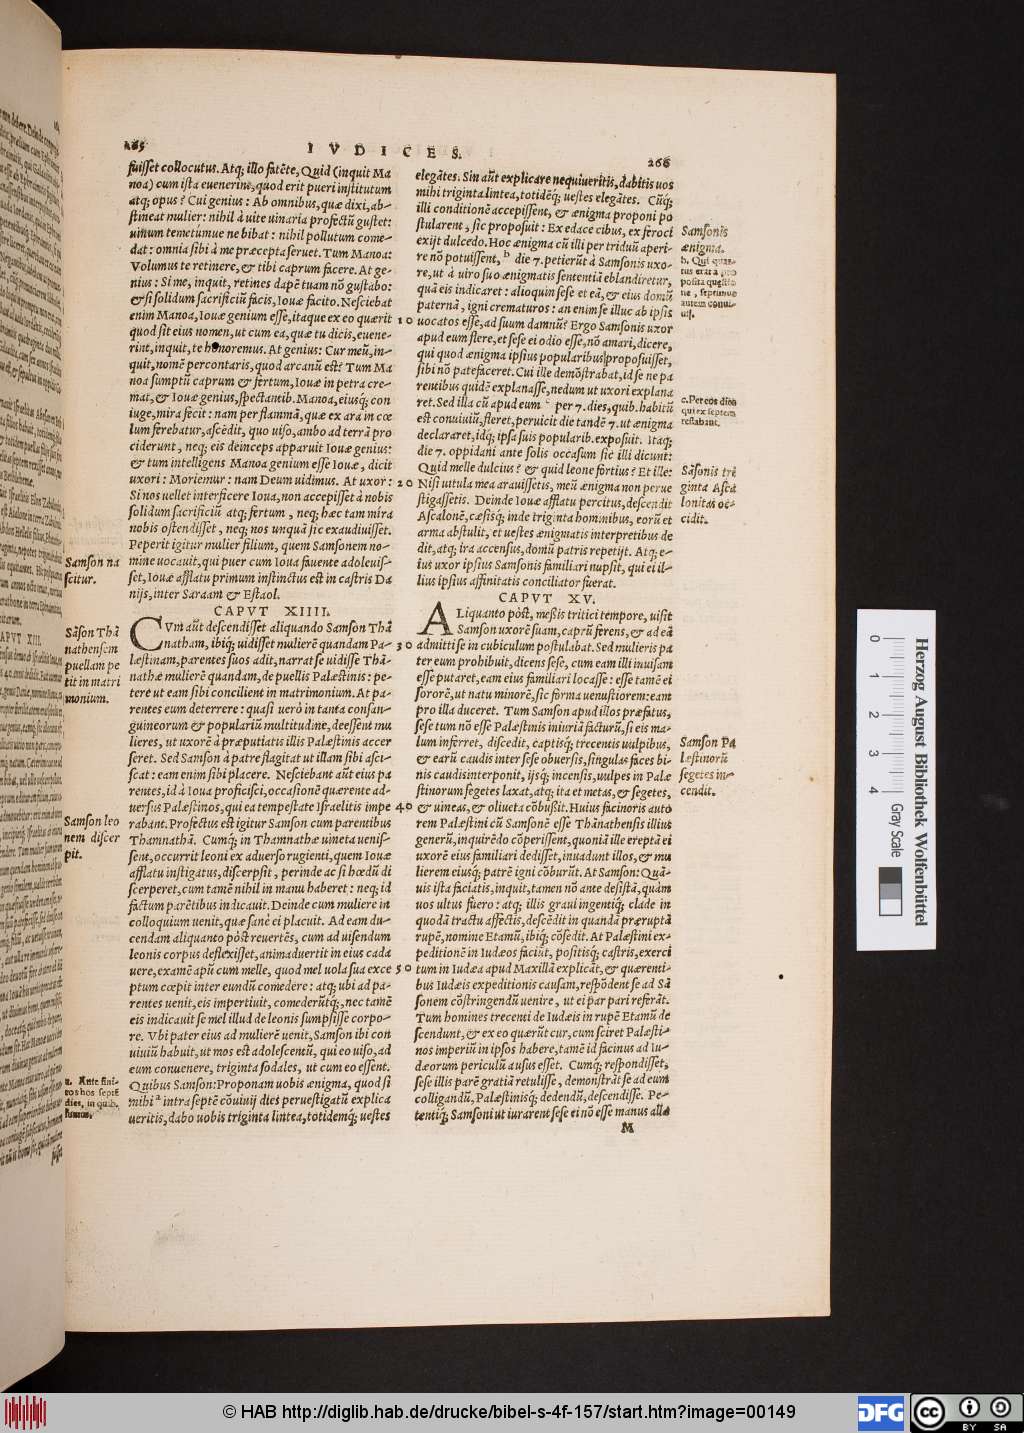 265
IVDICES.
266
fuisset collocutus. Atq; illo fatẽte, Quid (inquit Ma
noa) cum ista euenerint, quod erit pueri institutum
atq; opus? Cui genius: Ab omnibus, quæ dixi, ab-
stineat mulier: nihil à uite uinaria profectũ gustet:
uinum temetumue ne bibat: nihil pollutum come-
dat: omnia sibi à me præcepta seruet. Tum Manoa:
Volumus te retinere, & tibi caprum facere. At ge-
nius: Si me, inquit, retines dapẽ tuam nõ gustabo:
& si solidum sacrificiũ facis, Iouæ facito. Nesciebat
enim Manoa, Iouæ genium esse, itaque ex eo quærit
quod sit eius nomen, ut cum ea, quæ tu dicis, euene-
rint, inquit, te honoremus. At genius: Cur meũ, in-
quit, nomẽ percontaris, quod arcanũ est? Tum Ma
noa sumptũ caprum & fertum, Iouæ in petra cre-
mat, & Iouæ genius, spectantib. Manoa, eiusq; con
iuge, mira fecit: nam per flammã, quæ ex ara in cœ
lum ferebatur, ascẽdit, quo uiso, ambo ad terrã pro
ciderunt, neq; eis deinceps apparuit Iouæ genius:
& tum intelligens Manoa genium esse Iouæ, dicit
uxori: Moriemur: nam Deum uidimus. At uxor:
Si nos uellet interficere Ioua, non accepisset à nobis
solidum sacrificiũ atq; fertum, neq; hæc tam mira
nobis ostendisset, neq; nos unquã sic exaudiuisset.
Peperit igitur mulier filium, quem Samsonem no-
mine uocauit, qui puer cum Ioua fauente adoleuis-
set, Iouæ afflatu primum instinctus est in castris Da
nijs, inter Saraam & Estaol.
CAPVT XIIII.
CVm aũt descendisset aliquando Samson Thã
natham, ibiq; uidisset mulierẽ quandam Pa-
læstinam, parentes suos adit, narrat se uidisse Thã-
nathæ mulierẽ quandam, de puellis Palæstinis: pe-
tere ut eam sibi concilient in matrimonium. At pa-
rentes eum deterrere: quasi uerò in tanta consan-
guineorum & populariũ multitudine, deessent mu
lieres, ut uxorẽ à præputiatis illis Palæstinis accer
seret. Sed Samson à patre flagitat ut illam sibi asci-
scat: eam enim sibi placere. Nesciebant aũt eius pa
rentes, id à Ioua proficisci, occasionẽ quærente ad-
uersus Palæstinos, qui ea tempestate Israelitis impe
rabant. Profectus est igitur Samson cum parentibus
Thamnathã. Cumq; in Thamnathæ uineta uenis-
sent, occurrit leoni ex aduerso rugienti, quem Iouæ
afflatu instigatus, discerpsit, perinde ac si hœdũ di
scerperet, cum tamẽ nihil in manu haberet: neq; id
factum parẽtibus indicauit. Deinde cum muliere in
colloquium uenit, quæ sanè ei placuit. Ad eam du-
cendam aliquanto pòst reuertẽs, cum ad uisendum
leonis corpus deflexisset, animaduertit in eius cada
uere, examẽ apũ cum melle, quod mel uola sua exce
ptum cœpit inter eundũ comedere: atq; ubi ad pa-
rentes uenit, eis impertiuit, comederũtq;, nec tamẽ
eis indicauit se mel illud de leonis sumpsisse corpo-
re. Vbi pater eius ad mulierẽ uenit, Samson ibi con
uiuiũ habuit, ut mos est adolescentũ, qui eo uiso, ad
eum conuenere, triginta sodales, ut cum eo essent.
Quibus Samson: Proponam uobis ænigma, quod si
mihi a intra septẽ cõuiuij dies peruestigatũ explica
ueritis, dabo uobis triginta lintea, totidemq; uestes
Samson na
scitur.
Sãson Thã
nathensem
puellam pe
tit in matri
monium.
Samson leo
nem discer
pit.
a. Ante fini-
tos hos septẽ
dies, in quib.
sumus.
10
20
30
40
50
elegãtes. Sin aũt explicare nequiueritis, dabitis uos
mihi triginta lintea, totidẽq; uestes elegãtes. Cũq;
illi conditionẽ accepissent, & ænigma proponi po
stularent, sic proposuit: Ex edace cibus, ex feroci
exijt dulcedo. Hoc ænigma cũ illi per triduũ aperi-
re nõ potuissent, b die 7. petierũt à Samsonis uxo-
re, ut à uiro suo ænigmatis sententiã eblandiretur,
quã eis indicaret: alioquin sese et eã, & eius domũ
paternã, igni crematuros: an enim se illuc ab ipsis
uocatos esse, ad suum damnũ? Ergo Samsonis uxor
apud eum flere, et sese ei odio esse, nõ amari, dicere,
qui quod ænigma ipsius popularibus proposuisset,
sibi nõ patefaceret. Cui ille demõstrabat, id se ne pa
rentibus quidẽ explanasse, nedum ut uxori explana
ret. Sed illa cũ apud eum c per 7. dies, quib. habitũ
est conuiuiũ, fleret, peruicit die tandẽ 7. ut ænigma
declararet, idq; ipsa suis popularib. exposuit. Itaq;
die 7. oppidani ante solis occasum sic illi dicunt:
Quid melle dulcius? & quid leone fortius? Et ille:
Nisi uitula mea arauissetis, meũ ænigma non perue
stigassetis. Deinde Iouæ afflatu percitus, descendit
Ascalonẽ, cæsisq; inde triginta hominibus, eorũ et
arma abstulit, et uestes ænigmatis interpretibus de
dit, atq; ira accensus, domũ patris repetijt. Atq; e-
ius uxor ipsius Samsonis familiari nupsit, qui ei il-
lius ipsius affinitatis conciliator fuerat.
CAPVT XV.
ALiquanto pòst, messis tritici tempore, uisit
Samson uxorẽ suam, caprũ ferens, & ad eã
admitti se in cubiculum postulabat. Sed mulieris pa
ter eum prohibuit, dicens sese, cum eam illi inuisam
esse putaret, eam eius familiari locasse: esse tamẽ ei
sororẽ, ut natu minorẽ, sic forma uenustiorem: eam
pro illa duceret. Tum Samson apud illos præfatus,
sese tum nõ esse Palæstinis iniuriã facturũ, si eis ma-
lum inferret, discedit, captisq; trecentis uulpibus,
& earũ caudis inter sese obuersis, singulas faces bi-
nis caudis interponit, ijsq; incensis, uulpes in Palæ
stinorum segetes laxat, atq; ita et metas, & segetes,
& uineas, & oliueta cõbußit. Huius facinoris auto
rem Palæstini cũ Samsonẽ esse Thãnathensis illius
generũ, inquirẽdo cõperissent, quoniã ille ereptã ei
uxorẽ eius familiari dedisset, inuadunt illos, & mu
lierem eiusq; patrẽ igni cõburũt. At Samson: Quã-
uis ista faciatis, inquit, tamen nõ ante desistã, quàm
uos ultus fuero: atq; illis graui ingentiq; clade in
quodã tractu affectis, descẽdit in quandã præruptã
rupẽ, nomine Etamũ, ibiq; cõsedit. At Palæstini ex-
peditionẽ in Iudæos faciũt, positisq; castris, exerci
tum in Iudæa apud Maxillã explicãt, & quærenti-
bus Iudæis expeditionis causam, respõdent se ad Sã
sonem cõstringendũ uenire, ut ei par pari referãt.
Tum homines trecenti de Iudæis in rupẽ Etamũ de
scendunt, & ex eo quærũt cur, cum sciret Palæsti-
nos imperiũ in ipsos habere, tamẽ id facinus ad Iu-
dæorum periculũ ausus esset. Cumq; respondisset,
sese illis parẽ gratiã retulisse, demonstrãt se ad eum
colligandũ, Palæstinisq; dedendũ, descendisse. Pe-
tentiq; Samsoni ut iurarent sese ei nõ esse manus alla
M
Samsonis
ænigma.
b. Qui quar-
tus erat à pro
posita questio
ne, septimus
autem conui-
uij.
c. Per eos dies
qui ex septem
restabant.
Sãsonis tri
ginta Asca
lonitas oc-
cidit.
Samson Pa
læstinorũ
segetes in-
cendit.
0 1 2 3 4
Gray Scale
Herzog August Bibliothek Wolfenbüttel
© HAB http://diglib.hab.de/drucke/bibel-s-4f-157/start.htm?image=00149
DFG
cc
BY SA